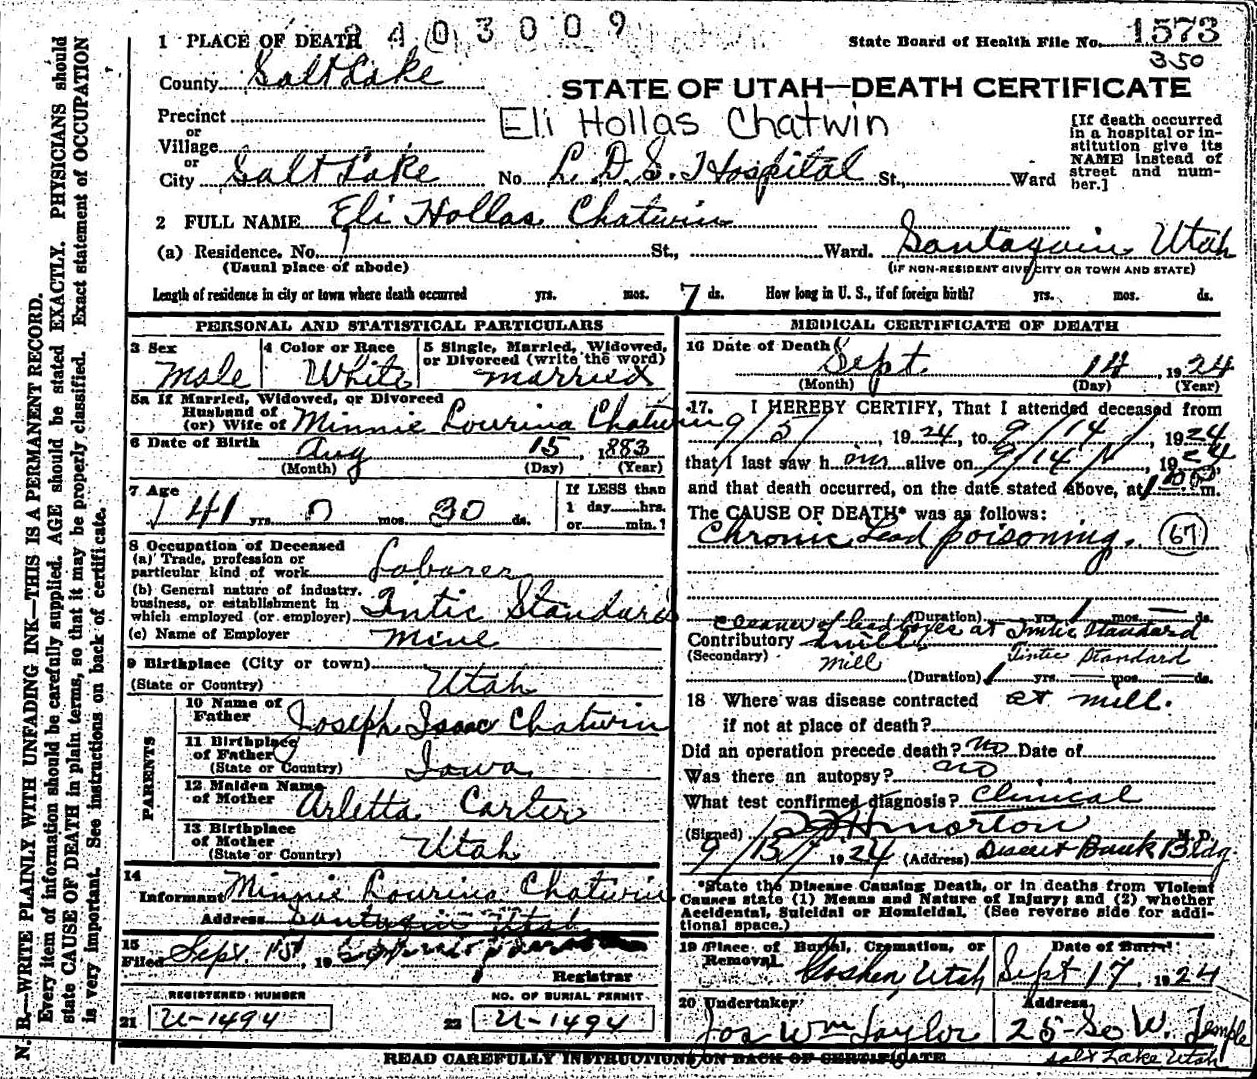 2403009
1 PLACE OF DEATH
State Board of Health File No. 1573
350
County Salt Lake
STATE OF UTAH—DEATH CERTIFICATE
Precinct
or
Village
or
City Salt Lake
Eli Hollas Chatwin
No. L. D. S. Hospital St., Ward
[If death occurred in a hospital or in-
stitution give its
NAME instead of
street and num-
ber.]
2 FULL NAME Eli Hollas Chatwin
(a) Residence. No. St., Ward. Santaquin Utah
(Usual place of abode) (IF NON-RESIDENT GIVE CITY OR TOWN AND STATE)
Length of residence in city or town where death occurred yrs. mos. 7 ds. How long in U. S., if of foreign birth? yrs. mos. ds.
PERSONAL AND STATISTICAL PARTICULARS
3 Sex
Male
4 Color or Race
White
5 Single, Married, Widowed,
or Divorced (write the word)
married
5a If Married, Widowed, or Divorced
Husband of
(or) Wife of Minnie Lourina Chatwin
6 Date of Birth Aug 15, 1883
(Month) (Day) (Year)
7 Age
41 yrs. 0 mos. 30 ds.
If LESS than
1 day hrs.
or min.?
8 Occupation of Deceased
(a) Trade, profession or
particular kind of work Laborer
(b) General nature of industry,
business, or establishment in
which employed (or employer) Tintic Standard
(c) Name of Employer Mine
9 Birthplace (City or town)
(State or Country) Utah
PARENTS
10 Name of
Father Joseph Isaac Chatwin
11 Birthplace
of Father
(State or Country) Iowa
12 Maiden Name
of Mother Arletta Carter
13 Birthplace
of Mother
(State or Country) Utah
14
Informant Minnie Lourina Chatwin
Address Santaquin Utah
15
Filed Sept 15, 19
Registrar
REGISTERED NUMBER
21 U-1494
NO. OF BURIAL PERMIT
22 U-1494
MEDICAL CERTIFICATE OF DEATH
16 Date of Death Sept. 14, 1924
(Month) (Day) (Year)
17. I HEREBY CERTIFY, That I attended deceased from
9/5/, 1924, to 9/14/, 1924
that I last saw him alive on 9/14/, 1924
and that death occurred, on the date stated above, at m.
The CAUSE OF DEATH* was as follows:
Chronic Lead poisoning. 67
(Duration) yrs. 1 mos. — ds.
Contributory cleaner of lead at Tintic Standard
(Secondary) Mill Tintic Standard
(Duration) 1 yrs. — mos. — ds.
18 Where was disease contracted at mill.
if not at place of death?
Did an operation precede death? no Date of
Was there an autopsy? no
What test confirmed diagnosis? Clinical
(Signed) Morton M. D.
9/15/ 1924 (Address) Bank Bldg.
*State the Disease Causing Death, or in deaths from Violent
Causes state (1) Means and Nature of Injury; and (2) whether
Accidental, Suicidal or Homicidal. (See reverse side for addi-
tional space.)
19 Place of Burial, Cremation, or
Removal
Goshen, Utah
Date of Burial
Sept 17 1924
20 Undertaker
Jos Wm Taylor
Address
25 So W. Temple
Salt Lake Utah
READ CAREFULLY INSTRUCTIONS ON BACK OF CERTIFICATE
N. B.—WRITE PLAINLY WITH UNFADING INK—THIS IS A PERMANENT RECORD.
Every item of information should be carefully supplied. AGE should be stated EXACTLY. PHYSICIANS should
state CAUSE OF DEATH in plain terms, so that it may be properly classified. Exact statement of OCCUPATION
is very important. See instructions on back of certificate.